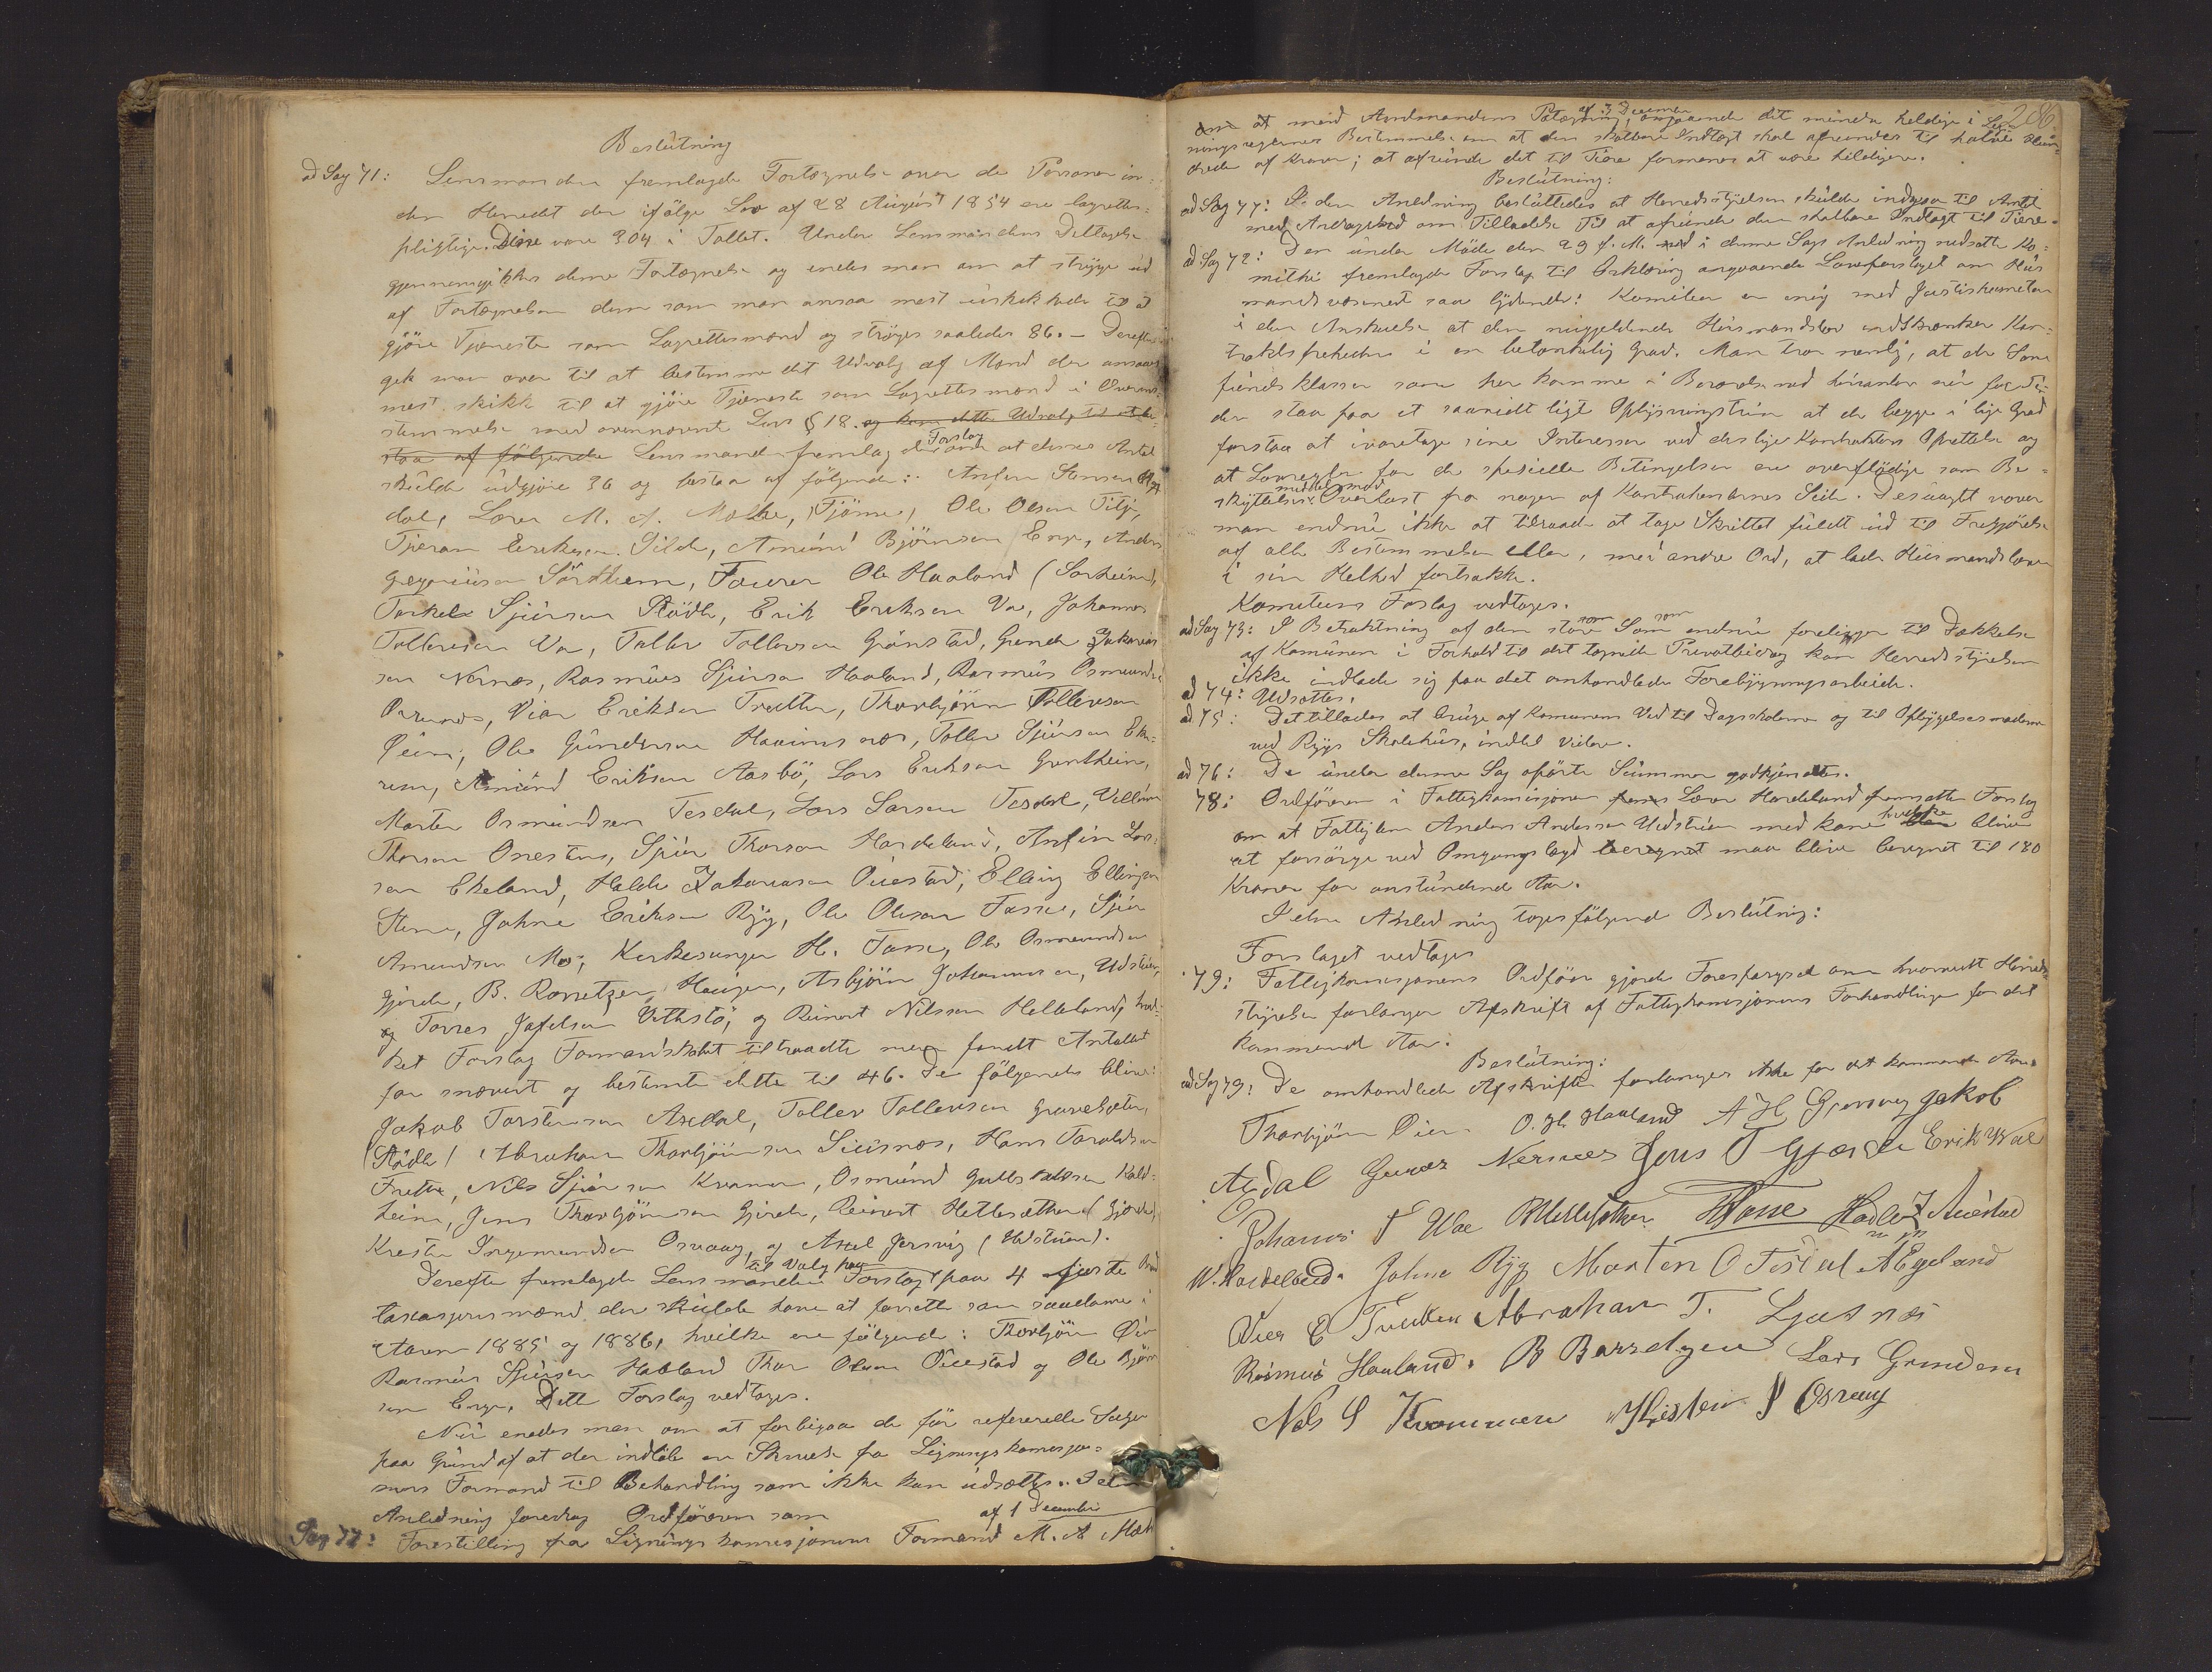 Beslutning
ad Sag 71: Lensmanden fremlagde Fortegnelse over de Personer in-
den Herredet der ifölge Lov af 28 August 1854 ere lagrettes-
pligtige. Disse vare 304 i Tallet. Under Lensmandens Deltagelse
gjennemgikkes denne Fortegnelse og enedes man om at stryge ud
af Fortegnelsen dem som man ansaa mest uskikkede til at
gjöre Tjeneste som Lagrettesmænd og ströges saaledes 86. – Derefter
gik man over til at bestemme det Udvalg af Mænd der ansaaes
mest skikket til at gjöre Tjeneste som Lagrettesmænd i Overens-
stemmelse med ovennævnt Lovs § 18. og kom dette Udvalg til at be-
staa af fölgende Lensmanden fremlagde Forslag om at denne Antal
skulde udgjöre 36 og bestaa af fölgende: Anfin Hansen
dal, Lærer M. A. Mæhle, Tjörne, Ole Olsen Titje,
Tjeran Eriksen Silde, Amund Björnsen Enge, Anders
Gregoriusen Sörthem, Faurer Ole Haaland (Sarheim),
Torkel Sjursen Stödle, Erik Eriksen Va, Johannes
Tollevsen Va, Tollev Tollevsen Grönstad, Gunder Zakarias-
sen Nernæs, Rasmus Sjursen Haaland, Rasmus Osmundsen
Osmunds, Vier Eriksen Tvedten, Thorbjörn Tollevsen
Öien, Ole Gundersen Havimnæs, Tollev Sjursen Eke-
rem, Amund Eriksen Aasbö, Lars Eriksen Grindheim,
Marten Osmundsen Tesdal, Lars Larsen Tesdal, Vellum
Thorsen Onestens, Sjur Thorsen Hardeland, Anfin Lar-
sen Ekeland, Helde Zakariasen Öiestad, Elling Ellingsen
Stene, Johne Eriksen Ryg, Ole Olesen Fosse, Sjur
Amundsen Mo, Kirkesanger H. Fosse, Ole Osmundsen
Gjerde, B. Rosretzen Haugen, Asbjörn Johannesen, Udstuen,
og Torres Jofelsen Vethstö, og Reinert Nilssen Helleland, hvil-
ket Forslag Formandskabet tiltraadte men fandt Antallet
for snævert og bestemte dette til 46. De fölgende blive:
Jakob Torstensen Axdal, Tollev Tollevsen Gravelsæter,
(Stödle) Abraham Thorbjörnsen Liusnæs, Hans Taraldsen
Frette, Nils Sjursen Kvamen, Osmund Guttormsen Kald-
heim, Jens Thorbjörnsen Gjerde, Reinert Hetlesæther (Gjerde),
Kristen Ingemundsen Osvaag, og Axel Jersvig (Udstuen).
Derefter fremlagde Lensmanden til Valg paa Forslag paa 4 faste Brand-
taxasjonsmænd der skulde have at forrette som saadanne i
Aaren 1885 og 1886, hvilke ere fölgende: Thorbjörn Öien
Rasmus Sjursen Haaland Thor Olsen Öiestad og Ole Björn-
sen Enge. Dette Forslag vedtoges.
Nu enedes man om at forbigaa de för refererede Sager
paa Grund af at der indlöb en Skrivelse fra Ligningskomisjo-
nens Formand til Behandling som ikke kan udsættes. I denne
Anledning foredrog Ordföreren som
Sag 77: Forestilling fra Ligningskomisjonens Formand M. A. Mæhle af 1 December
286
om at med Amdmandens Paategning af 3 Decemer angaaende det mindre heldige i Lig-
ningsreglernes Bestemmelse om at den skatbare Indtægt skal afrundes til halve Hun-
drede af Kroner; at afrunde det til Tiere formenes at være heldigere.
Beslutning:
ad Sag 77: I den Anledning besluttedes at Herredsstyrelsen skulde indgaa til Amtet
med Andragende om Tilladelse til at afrunde den skatbare Indtægt til Tiere.
ad Sag 72: Den under Möde den 29 f. M. i denne Sags Anledning nedsatte Ko-
mitte fremlagde Forslag til Erklæring angaaende Lovforslaget om Hus-
mandsvæsenet saa lydende: Komiteen er enig med Justiskomiteen
i den Anskuelse at den nugjeldende Husmandslov indskrænker Kon-
traktsfriheden i en betænkelig Grad. Man tror nemlig, at de Sam-
fundsklasser som her komme i Beröring med hinanden nu for Ti-
den staa paa et saavidt ligt Oplysningstrin at de begge i lige Grad
forstaa at ivaretage sine Interesser ved deslige Kontrakters Oprettelse og
at Lovregler for de spesielle Betingelser ere overflödige som Be-
skyttelsesmiddel mod Overlast fra nogen af Kontrahenternes Side. Desuagtet vover
man endnu ikke at tilraade at tage Skrittet fuldt ud til Frigjörelse
af alle Bestemmelser eller, med andre Ord, at lade Husmandsloven
i sin Helhed fortrække.
Komiteens Forslag vedtoges.
ad Sag 73: I Betraktning af den store Sum som endnu foreligger til Dækkelse
af Komunen i Forhold til det tegnede Privatbidrag kan Herredsstyrelsen
ikke indlade sig paa det omhandlede Forebygningsarbeide.
ad 74: Udsættes.
ad 75: Det tillades at bruge af Komunens Ved til Dagskolerne og til Opbyggelsesmöderne
ved Rygs Skolehus, indtil videre.
ad 76: De under denne Sag opförte Summer godkjendtes.
78: Ordföreren i Fattigkomisjonen Lærer Hardeland fremsatte Forslag
om at Fattiglem Anders Andersen Udstuen med Kone hvilke bliver
at forsörge ved Omgangslægd beregnet maa blive beregnet til 180
Kroner for anstundende Aar.
I den Anledning toges fölgende Beslutning:
Forslaget vedtages
79: Fattigkomisjonens Ordförer gjorde Forespörgsel om hvorvidt Herreds-
styrelsen forlanger Afskrift af Fattigkomisjonens Forhandlinger for det
kommende Aar.
Beslutning:
ad Sag 79: De omhandlede Afskrifter forlanges ikke for det kommende Aar.
Thorbjörn Öien O. H. Haaland A H Gjersvig Jakob
Axdal Gunder Nernæs Jens T Gjerde Erik Wae
Johanes T Wae R Hetlesæther H Fosse Hadle Z Øiestad
W. Hardeland. Johne Ryg Marten O Tesdal A Egeland
m p
Vier E Tvedten Abraham T. Ljusnes
Rasmus Haaland. B Barretzen Lars Grindem
Nels S Kvammen Kristen I Osvaag